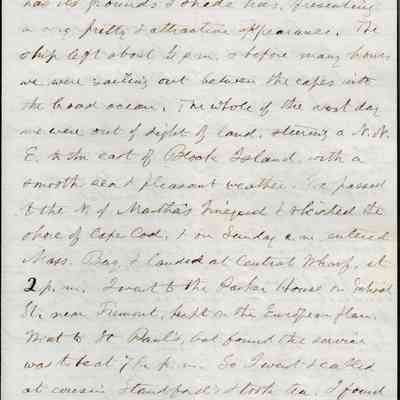 has its grounds & shade trees, presenting
a very pretty & attractive appearance. The
ship left about 4 p.m. & before many hours
we were sailing out between the capes into
the broad ocean. The whole of the next day
we were out of sight of land, steering a N. N.
E. to the east of Block Island, with a
smooth sea & pleasant weather. We passed
to the N. of Martha's Vineyard & skirted the
shore of Cape Cod, & on Sunday a.m. entered
Mass. Bay, & landed at Central Wharf, at
2 p.m. I went to the Parker House on School
St., near Tremont, kept on the European plan.
Went to St. Paul's, but found the service
was to be at 7½ p.m. So I went & called
at cousin Standford's & took tea. I found